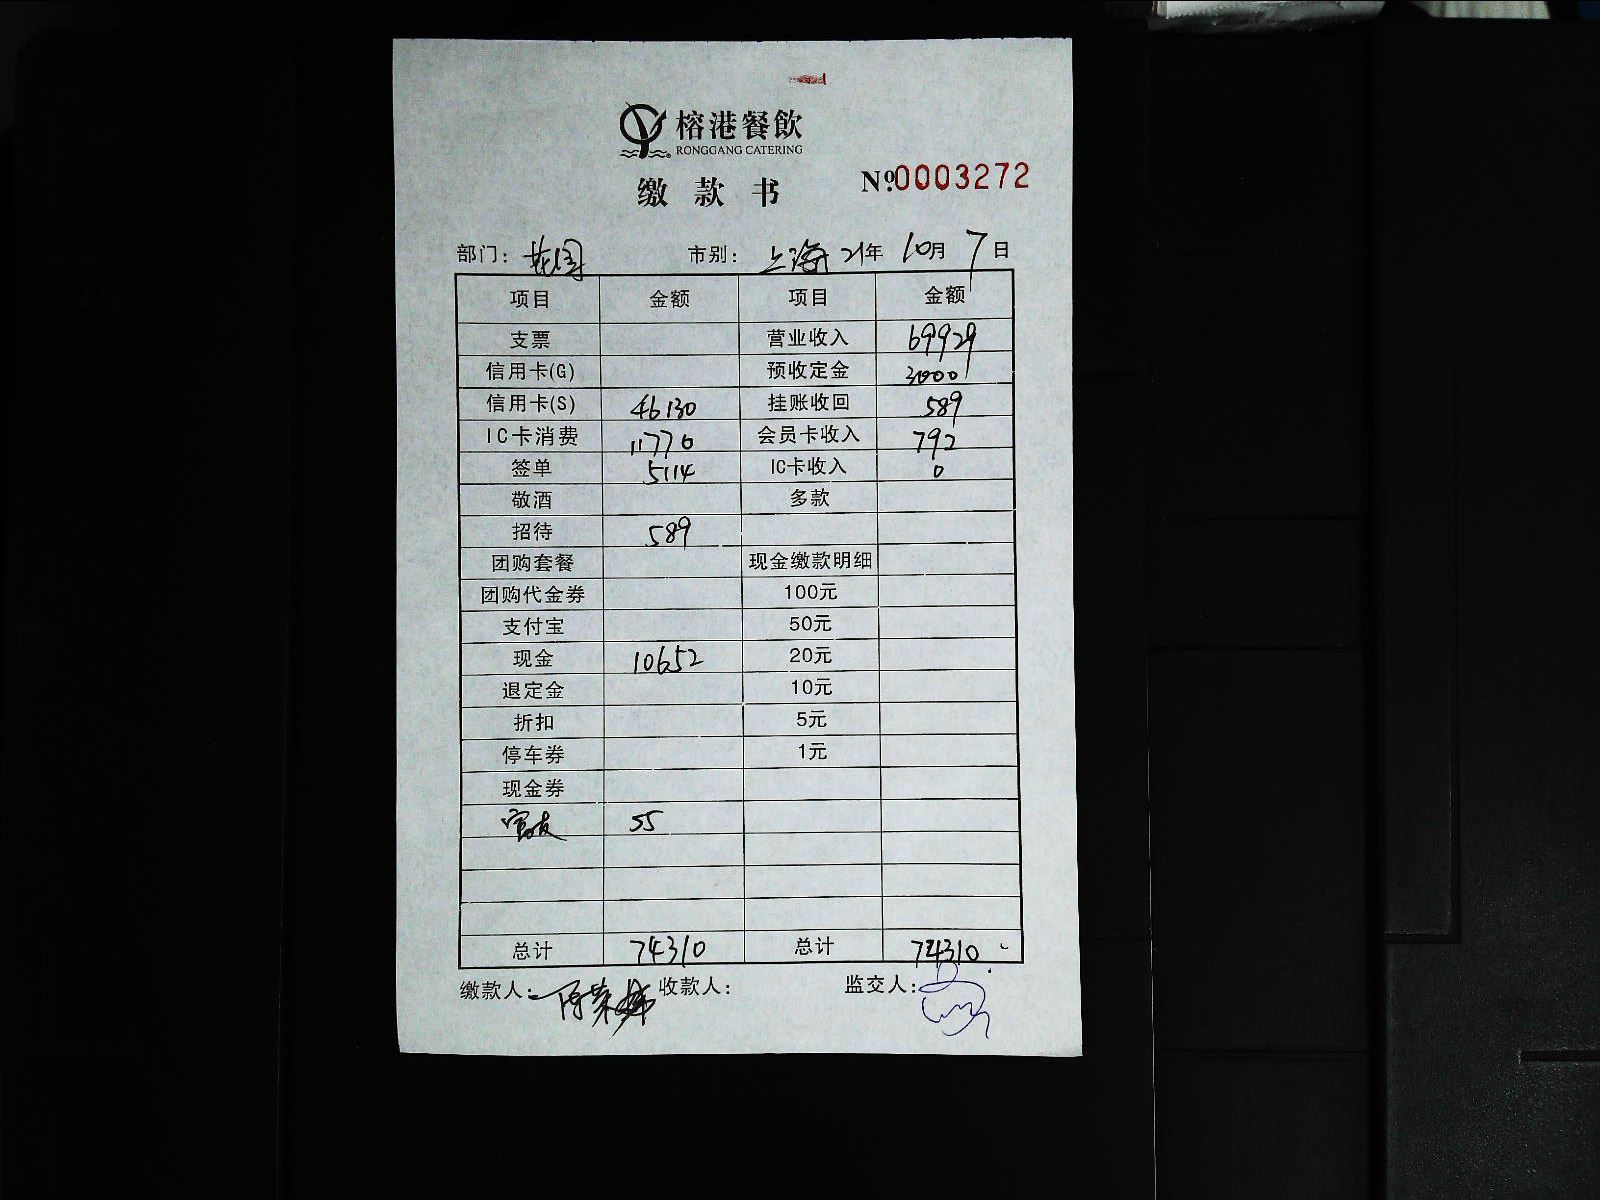 榕港餐飲
RONGGANG CATERING
缴款书
№0003272
部门：花园 市别：上海 21年 10月 7日
项目 金额 项目 金额
支票 营业收入 69929
信用卡(G) 预收定金 3000
信用卡(S) 46130 挂账收回 589
IC卡消费 11770 会员卡收入 792
签单 5114 IC卡收入 0
敬酒 多款
招待 589
团购套餐 现金缴款明细
团购代金券 100元
支付宝 50元
现金 10652 20元
退定金 10元
折扣 5元
停车券 1元
现金券
55
总计 74310 总计 74310
缴款人： 收款人： 监交人：